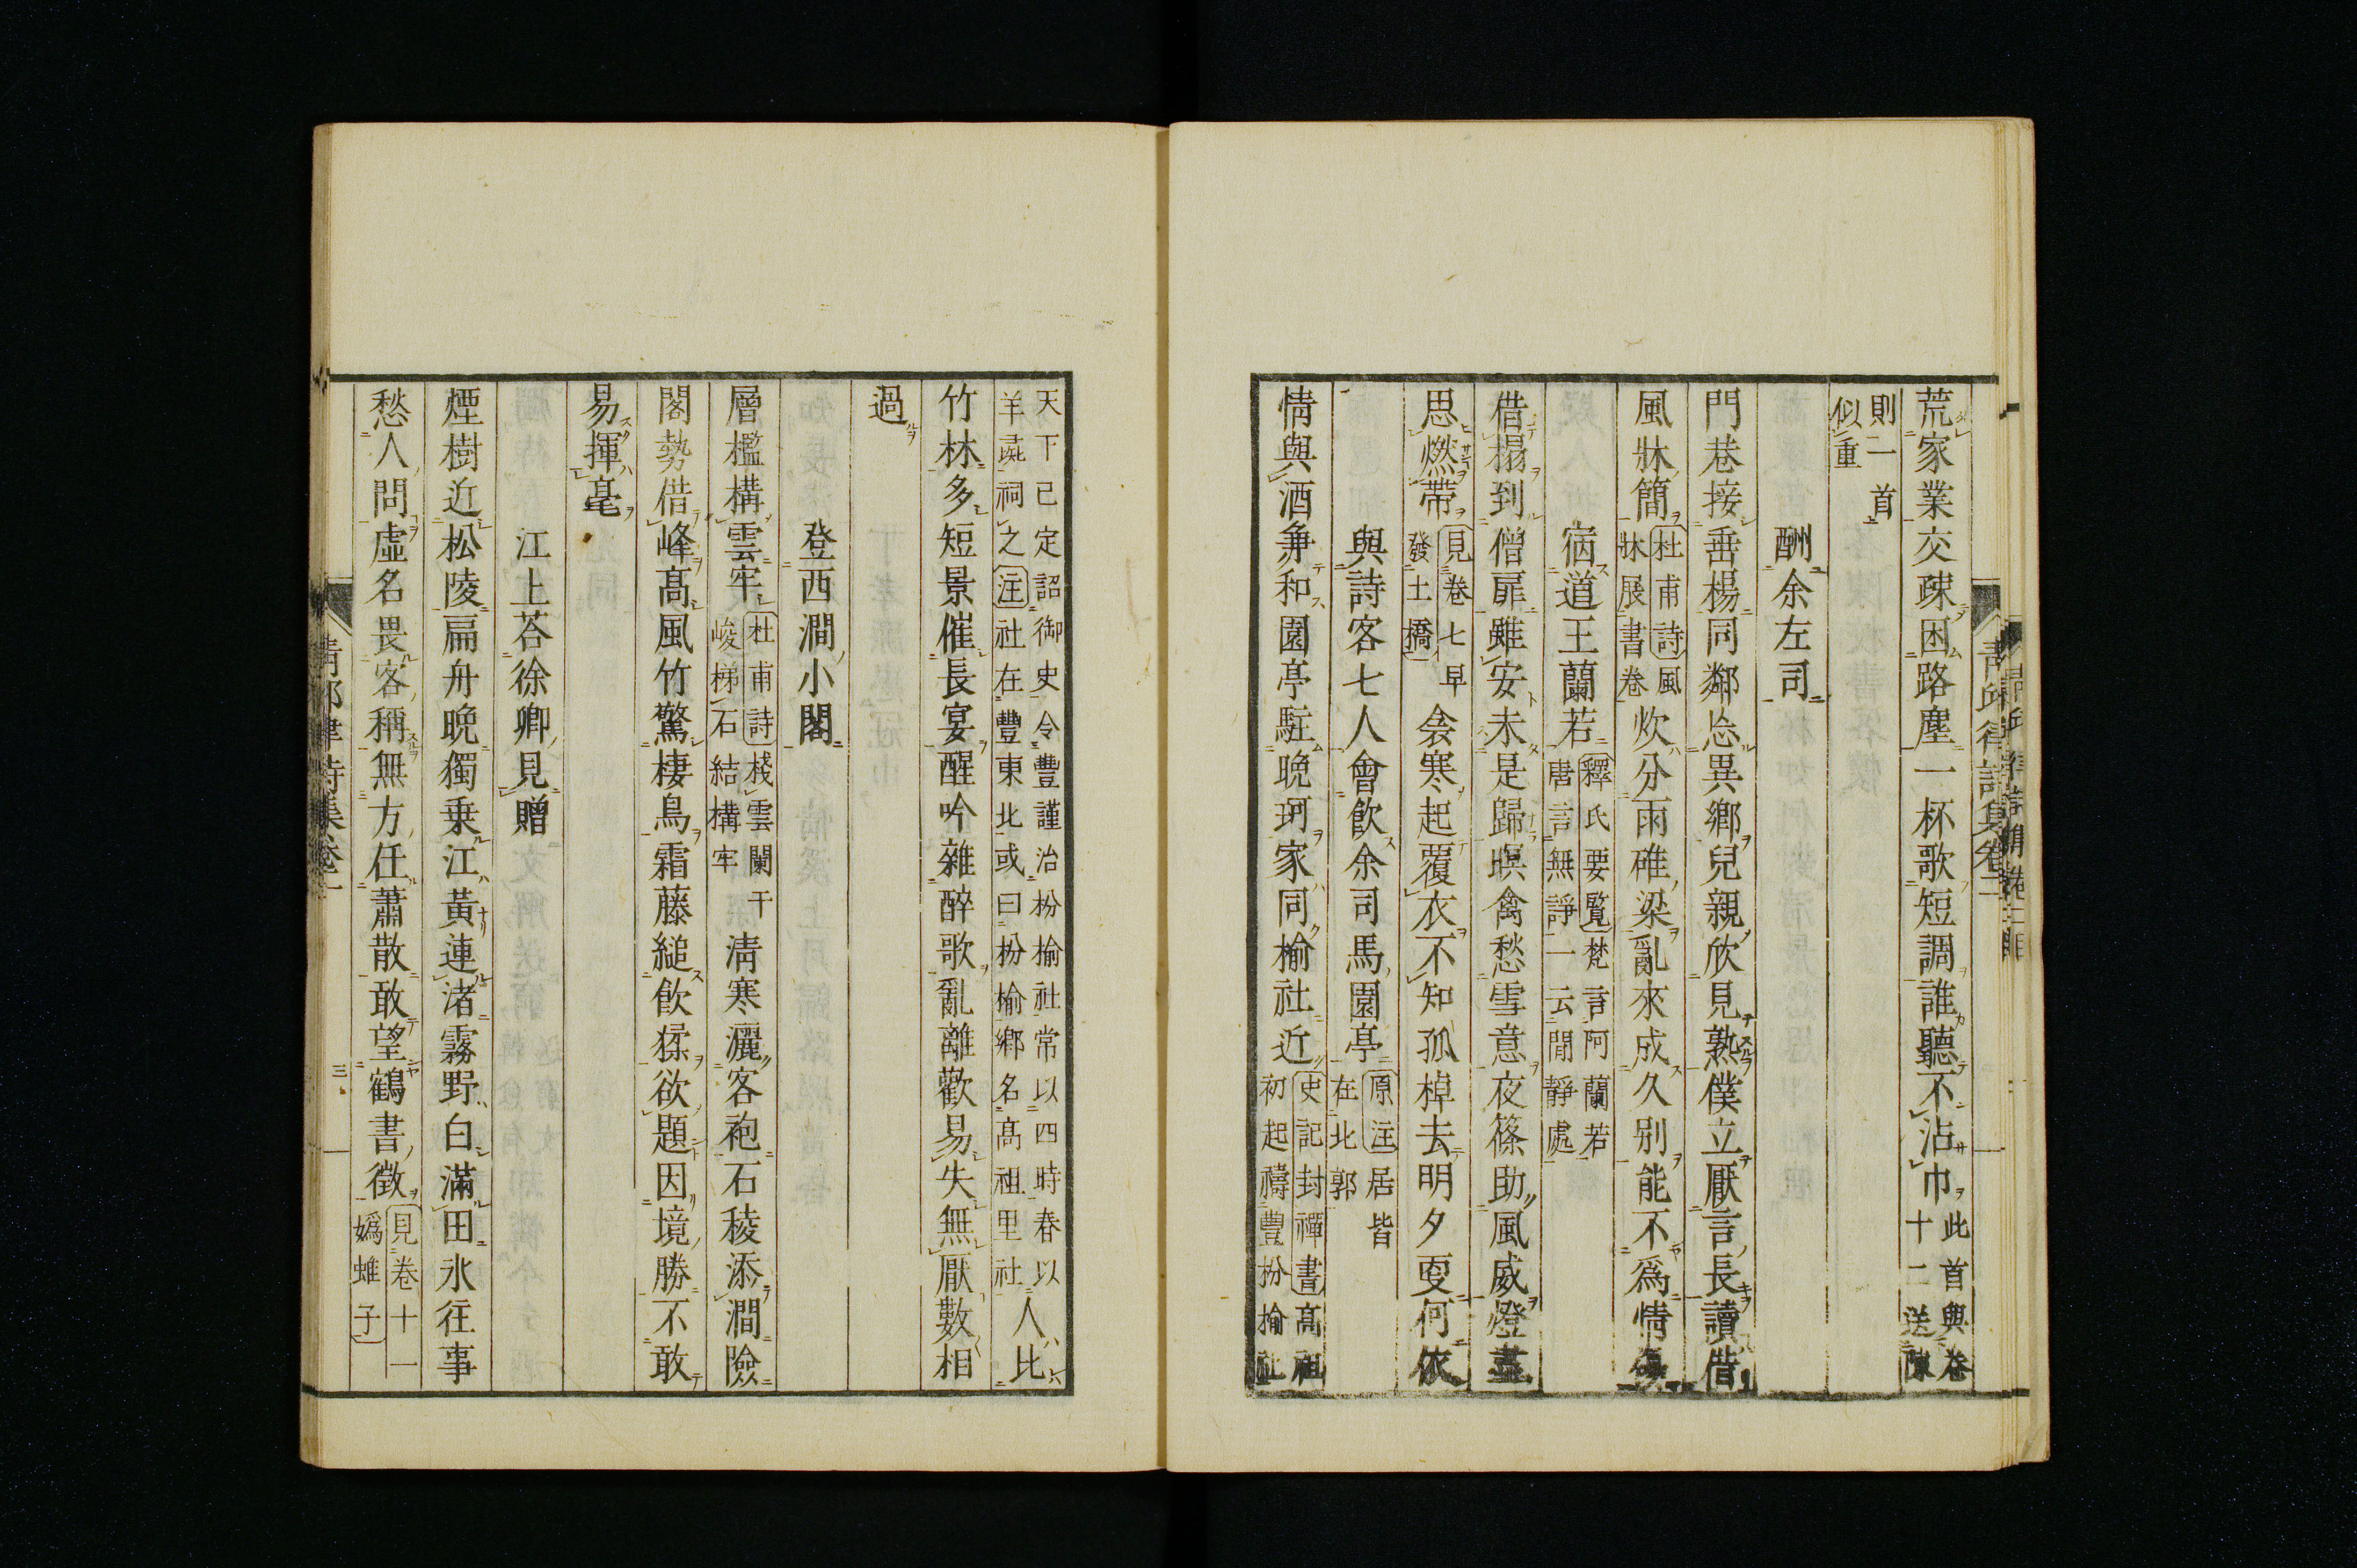 荒家業交疎困路塵一杯歌短調誰聽不沾巾此首與卷十二送陳
則二首似重
酬余左司
門巷接垂楊同鄰恙異鄉兒親欣見熟僕立厭言長讀借
風牀簡杜甫詩風牀展書卷炊分雨碓梁亂來成久别能不爲情
宿道王蘭若釋氏要覧梵言阿蘭若唐言無諍一云閒靜處
借榻到僧扉雖安未是歸暝禽愁雪意夜篠助風威燈盡
思燃帶見卷七早發土橋衾寒起覆衣不知孤棹去明夕更何依
與詩客七人會飲余司馬園亭原注居皆在北郭
情與酒兼和園亭駐晚珂家同榆社近史記封禪書高祖初起禱豐枌榆社
天下已定詔御史令豐謹治枌榆社常以四時春以羊彘祠之注社在豐東北或曰枌榆鄉名高祖里社人比
竹林多短景催長宴醒吟雜醉歌亂離歡易失無厭數相
過
登西澗小閣
層檻構雲牢杜甫詩棧雲闌干峻梯石結構牢清寒灑客袍石稜添澗險
閣勢借峰高風竹驚棲鳥霜藤縋飲猱欲題因境勝不敢
易揮毫
江上荅徐卿見贈
煙樹近松陵扁舟晚獨乗江黃連渚霧野白滿田氷往事
愁人問虛名畏客稱無方任蕭散敢望鶴書徵見卷十一嬀蜼子
青邱律詩集卷二
三